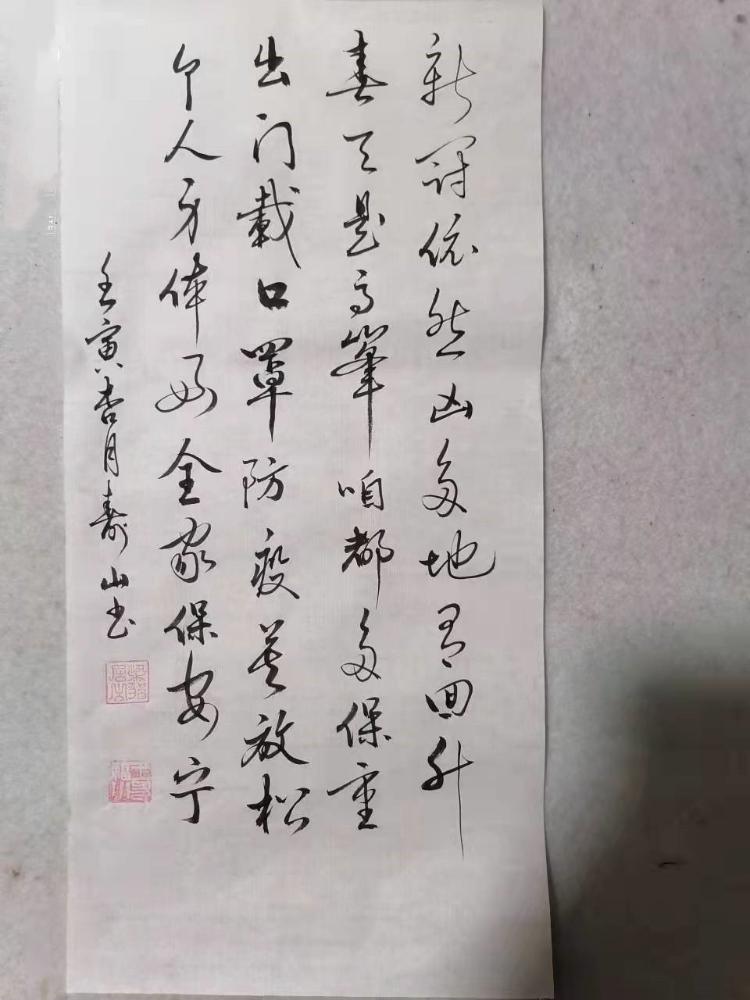 新冠依然凶多地有回升
春天是高峯咱都多保重
出门载口罩防疫莫放松
个人身体好全家保安宁
壬寅杏月寿山书